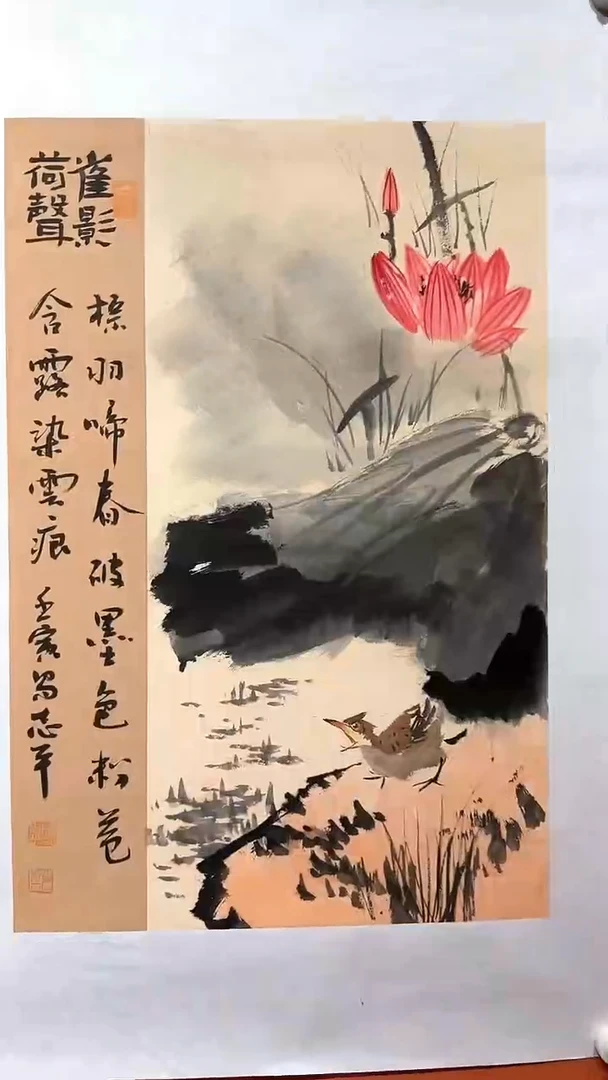 雀影
荷聲
棕羽啼春破墨色粉苞
含露染雲痕 壬寅 志平